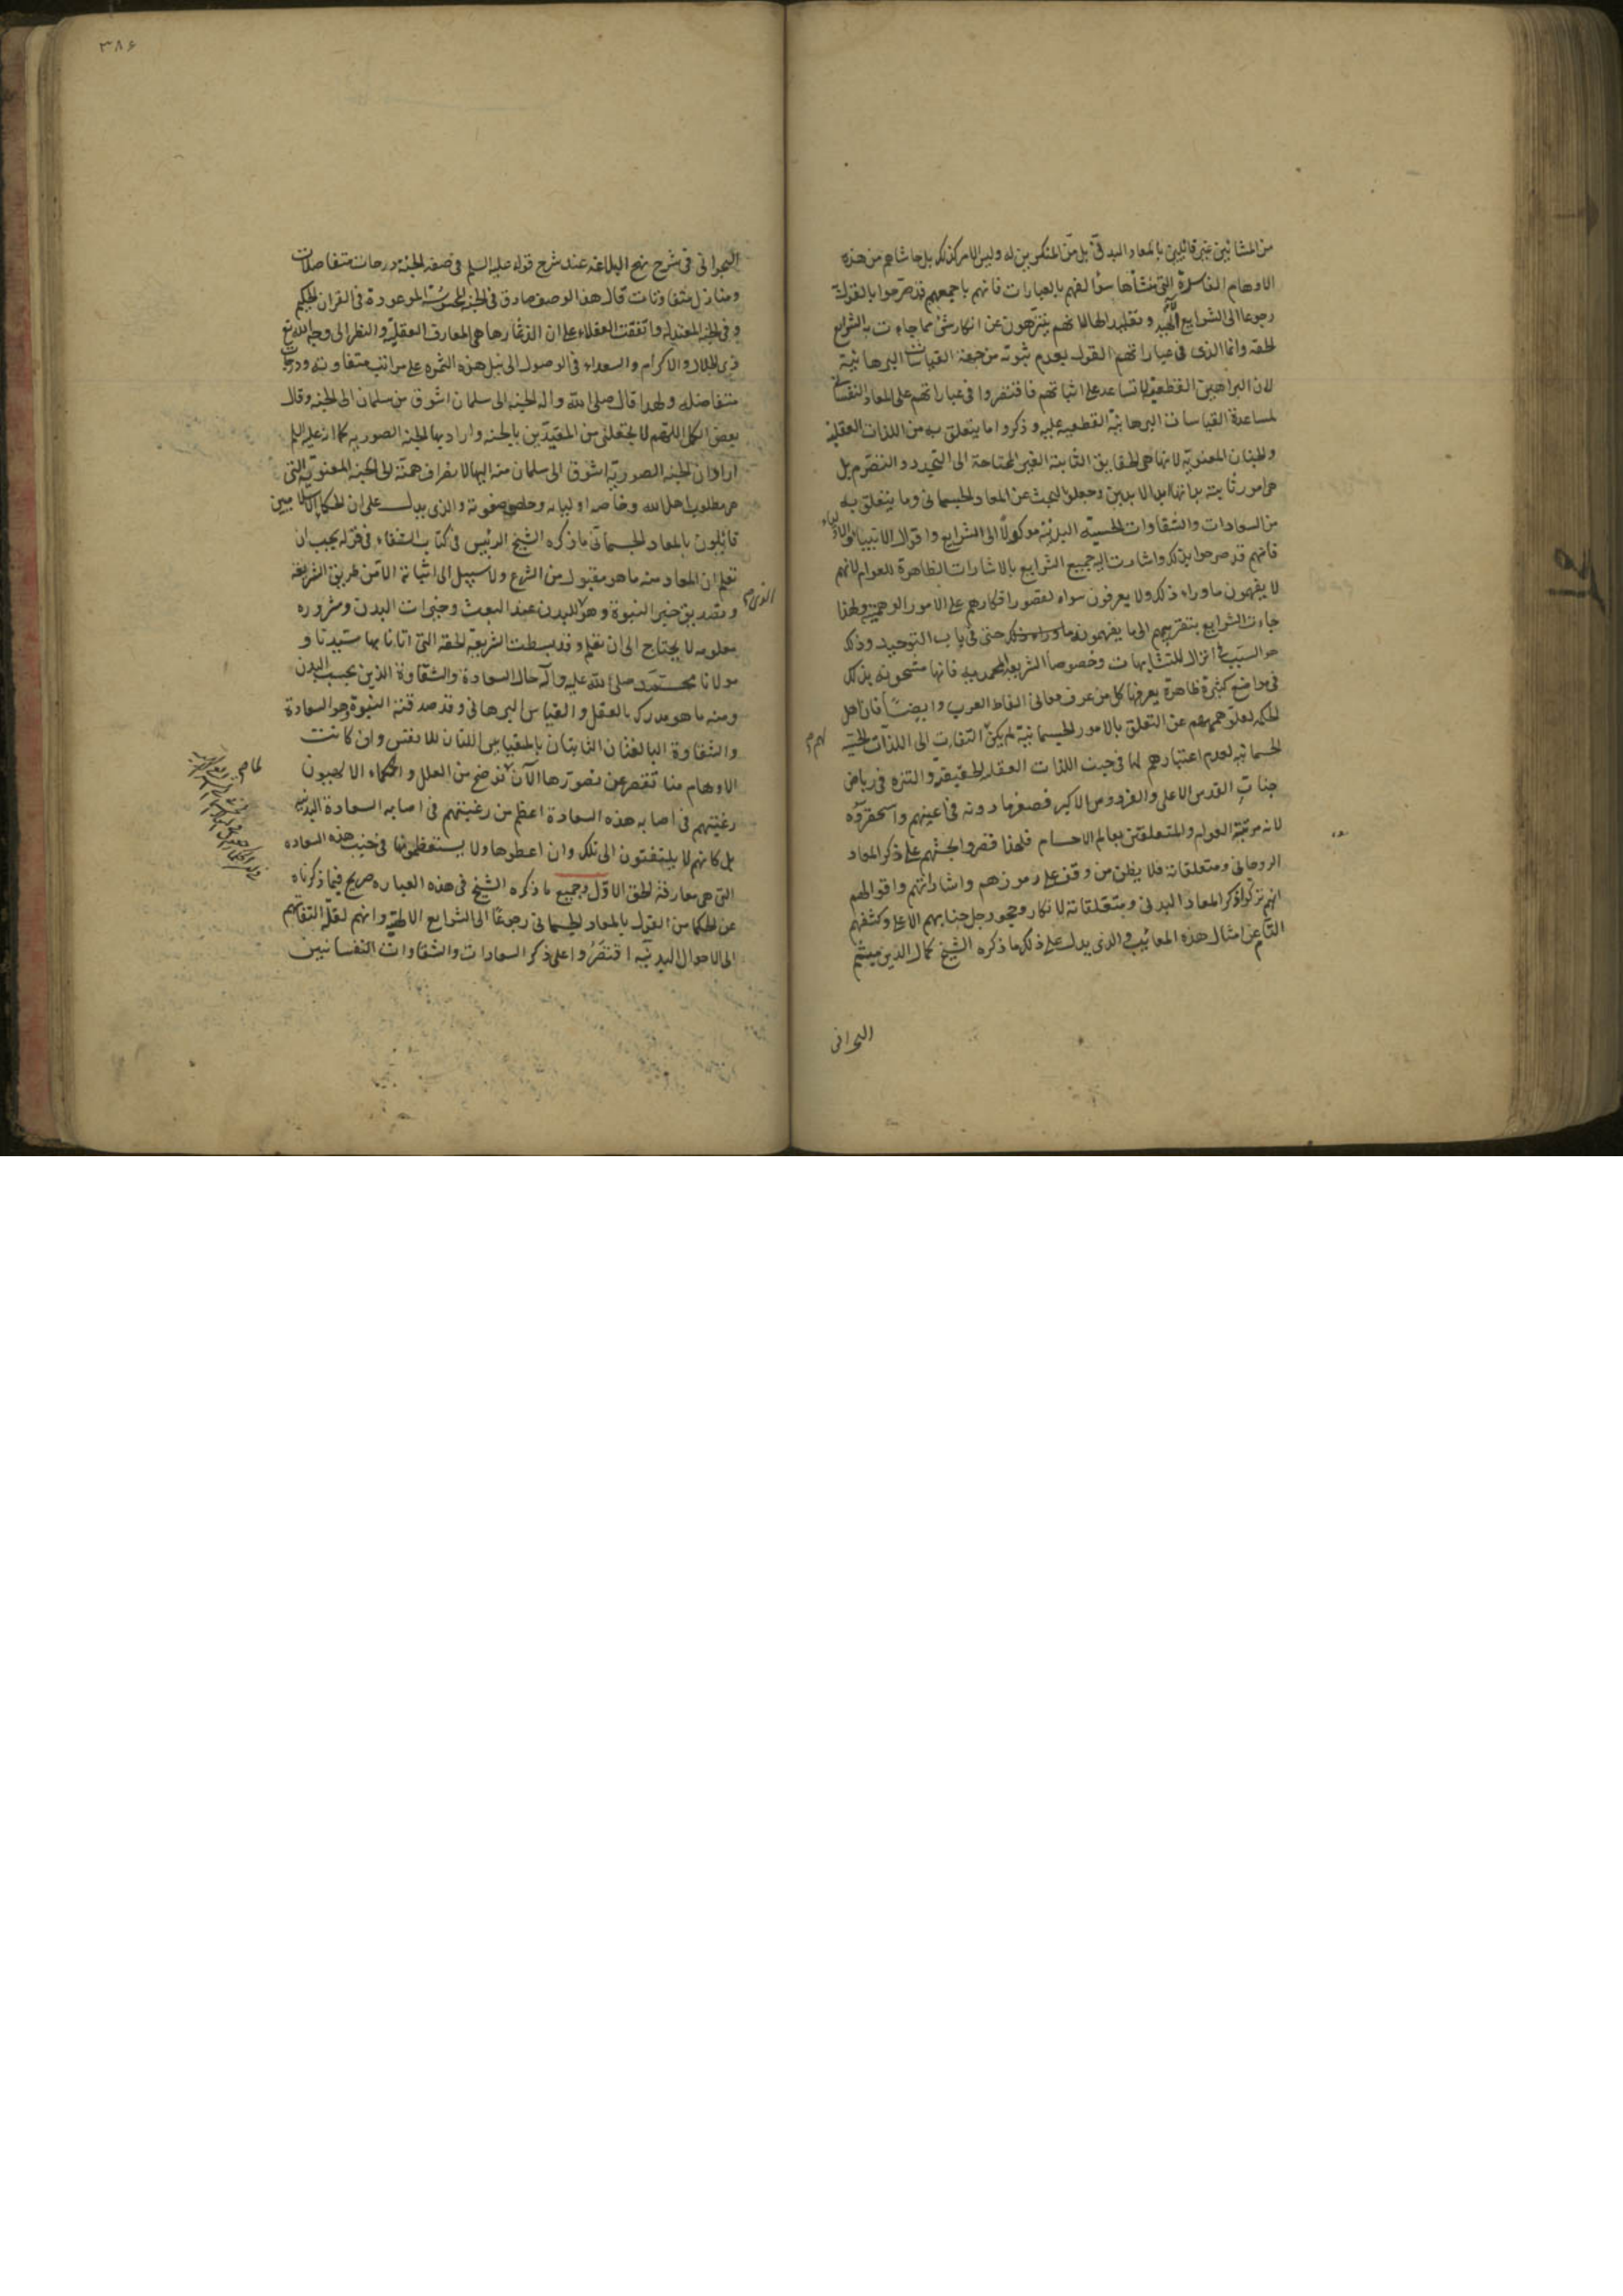 من المشائين غير قائلين بالمعاد البدنى بل من المنكرين له وليس الامر كذلك بل حاشاهم من هذه
الاوهام الفاسدة التى منشأها سؤ الفهم بالعبارات فانهم باجمعهم قد صرحوا بالقول به
رجوعا الى الشرايع الالهية وتقليدا لها لانهم يتنزهون عن انكار شئ مما جاءت به الشرايع
الحقة وانما الذى فى عباراتهم القول بعدم ثبوته من جهة القياسات البرهانية
لان البراهين القطعية لا تساعد على اثباتهم فاقتصروا فى عباراتهم على المعاد النفسانى
لمساعدة القياسات البرهانية القطعية عليه وذكروا ما يتعلق به من اللذات العقلية
والجنان المعنوية لانها هى الحقايق الثابتة الغير المحتاجة الى التجدد والتصرم بل
هى امور ثابتة بذاتها ابد الابدين وجعلوا البحث عن المعاد الجسمانى وما يتعلق به
من السعادات والشقاوات الحسية البدنية موكولا الى الشرايع واقوال الانبياء والاولياء
فانهم قد صرحوا بذلك واشارت اليه جميع الشرايع بالاشارات الظاهرة للعوام لانهم
لا يفهمون ماوراء ذلك ولا يعرفون سواه لقصور افكارهم على الامور الوهمية ولهذا
جاءت الشرايع بتقريبهم الى ما يفهمون ماوراء ذلك حتى فى باب التوحيد وذلك
هو السبب فى انزال المتشابهات وخصوصا الشريعة المحمدية فانها مشحونة بذلك
فى مواضع كثيرة ظاهرة يعرفها كل من عرف معانى الفاظ العرب وايضا فان اهل
الحكمة لعلو هممهم عن التعلق بالامور الجسمانية لم يكن التفات الى اللذات الحسية
لهم م
الجسمانية لعدم اعتبارهم لها فى جنب اللذات العقلية الحقيقية والتنزه فى رياض
جنات القدس الاعلى والفردوس الاكبر فصغر ما دونه فى اعينهم واستحقروه
لانه مرتبة العوام والمتعلقين بعالم الاجسام فلهذا قصروا بحثهم على ذكر المعاد
الروحانى ومتعلقاته فلا يظن من وقف على رموزهم واشاراتهم واقوالهم
انهم تركوا ذكر المعاد البدنى ومتعلقاته لانكار وجحود جل جنابهم الاعلى وكشفهم
التام عن امثال هذه المعائب والذى يدل على ذلك ما ذكره الشيخ كمال الدين ميثم
البحرانى
٣٨۶
البحرانى فى شرح نهج البلاغه عند شرح قوله عليه السلم فى صفة الجنة درجات متفاضلات
ومنازل متفاوتات قال هذا الوصف صادق فى الجنة المحسوسة الموعودة فى القران الحكيم
وفى الجنة المعنوية واتفقت العقلاء على ان الذ ثمارها هى المعارف العقلية والنظر الى وجه الله تع
ذى الجلال والاكرام والسعداء فى الوصول الى نيل هذه الثمره على مراتب متفاوته ودرجات
متفاضله ولهذا قال صلى الله واله الجنة الى سلمان اشوق من سلمان الى الجنه وقال
بعض الكمل اللهم لا تجعلنى من المقيدين بالجنه واراد بها الجنة الصوريه كما انه عليه السلم
اراد ان الجنة الصورية اشوق الى سلمان منه اليها لانصراف همته الى الجنة المعنوية التى
هى مطلوب اهل الله وخاصة اوليائه وخلص صفوته والذى يدل على ان الحكماء الاسلاميين
قائلون بالمعاد الجسمانى ما ذكره الشيخ الرئيس فى كتاب الشفاء فى قوله يجب ان
تعلم ان المعاد منه ما هو مقبول من الشرع ولا سبيل الى اثباته الا من طريق الشريعة
وتصديق خبر النبوة وهو للبدن عند البعث وخيرات البدن وشروره
الذى م
معلومه لا يحتاج الى ان تعلم وقد بسطت الشريعة الحقة التى اتانا بها سيدنا و
مولانا محمد صلى الله عليه وآله حال السعادة والشقاوة الذين بحسب البدن
ومنه ما هو مدرك بالعقل والقياس البرهانى وقد صدقته النبوة وهو السعادة
والشقاوة البالغتان الثابتان بالمقياس اللتان للانفس وان كانت
الاوهام منا تقصر عن تصورها الآن توضح من العلل والحكماء الالهيون
رغبتهم فى اصابه هذه السعادة اعظم من رغبتهم فى اصابه السعادة البدنية
بل كانهم لا يلتفتون الى تلك وان اعطوها ولا يستعظمونها فى جنب هذه السعاده
التى هى مقارفة الحق الاول وجميع ما ذكره الشيخ فى هذه العباره صريح فيما ذكرناه
عن الحكما من القول بالمعاد الجسمانى رجوعا الى الشرايع الالهية وانهم لقلة التفاتهم
الى الاحوال البدنيه اقتصروا على ذكر السعادات والشقاوات النفسانيين